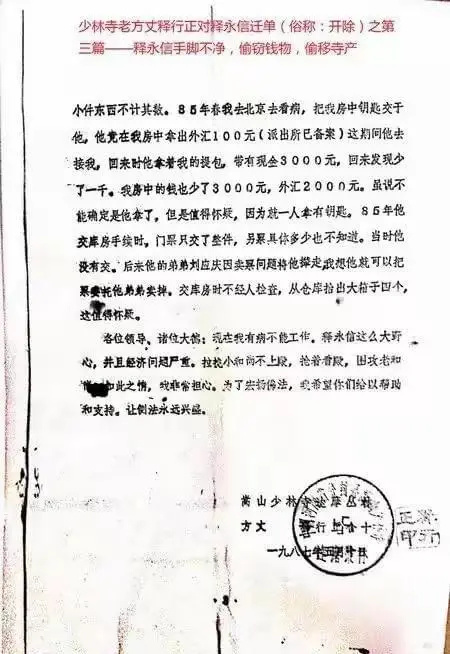 少林寺老方丈释行正对释永信迁单（俗称：开除）之第
三篇——释永信手脚不净，偷窃钱物，偷移寺产
小件东西不计其数。85年春我去北京去看病，把我房中钥匙交于
他，他竟在我房中拿出外汇100元（派出所已备案）这期间他去
接我，回来时他拿着我的提包，带有现金3000元，回来发现少
了一千。我房中的钱也少了3000元，外汇2000元。虽说不
能确定是他拿了，但是值得怀疑，因为就一人拿有钥匙。85年他
交库房手续时，门票只交了整件，另票具体多少也不知道。当时他
没有交。后来他的弟弟刘应庆因卖票问题将他撵走，我想他就可以把
票委托他弟弟卖掉。交库房时不经人检查，从仓库抬出大箱子四个，
这值得怀疑。
各位领导、诸位大德：现在我有病不能工作。释永信这么大野
心，并且经济问题严重。拉拢小和尚不上殿，抢着看殿，围攻老和
如此之情，我非常担心。为了宏扬佛法，我希望你们给以帮助
和支持。让佛法永远兴盛。
嵩山少林寺
方丈 行 合十
一九八七年